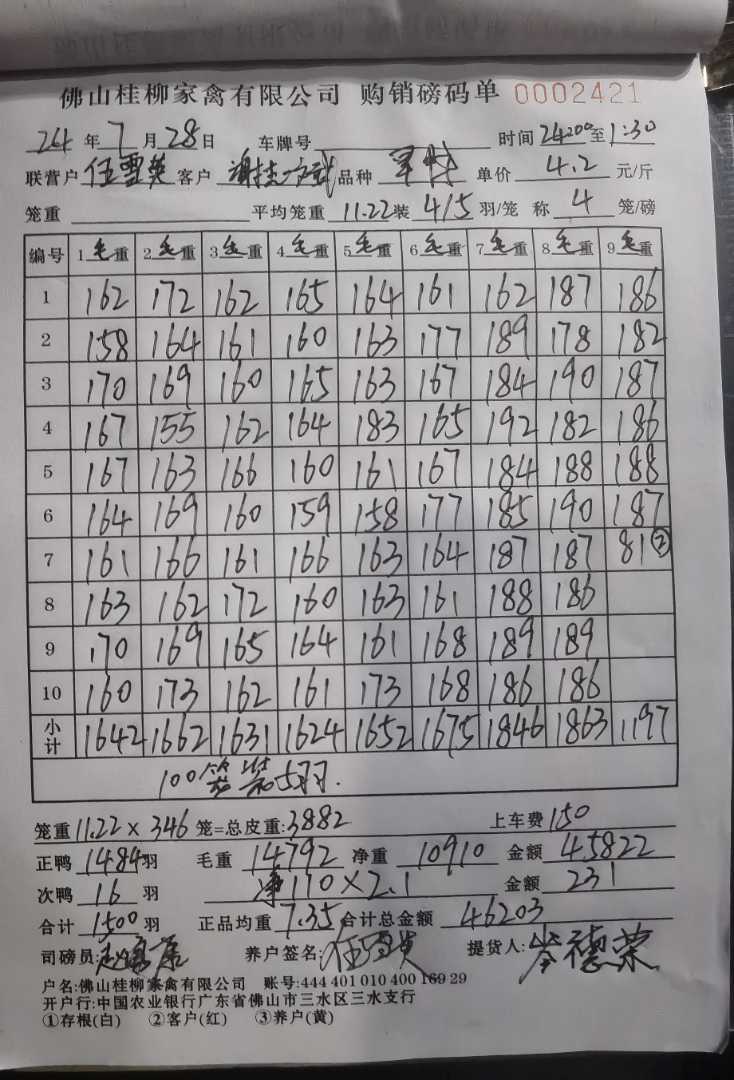 佛山桂柳家禽有限公司 购销磅码单 0002421
24 年 7 月 28 日 车牌号 时间 24:00 至 1:30
联营户 伍雪英 客户 品种 单价 4.2 元/斤
笼重 平均笼重 11.22 装 4/5 羽/笼 称 4 笼/磅
编号 1毛重 2毛重 3毛重 4毛重 5毛重 6毛重 7毛重 8毛重 9毛重
1 162 172 162 165 164 161 162 187 186
2 158 164 161 160 163 177 189 178 182
3 170 169 160 165 163 167 184 190 187
4 167 155 162 164 183 165 192 182 186
5 167 163 166 160 161 167 184 188 188
6 164 169 160 159 158 177 185 190 187
7 161 166 161 166 163 164 187 187 81②
8 163 162 172 160 163 161 188 186
9 170 169 165 164 161 168 189 189
10 160 173 162 161 173 168 186 186
小计 1642 1662 1631 1624 1652 1675 1846 1863 1197
100笼装5羽.
笼重 11.22 × 346 笼=总皮重: 3882 上车费 150
正鸭 1484 羽 毛重 14792 净重 10910 金额 45822
次鸭 16 羽 净110×2.1 金额 231
合计 1500 羽 正品均重 7.35 合计总金额 46203
司磅员: 养户签名: 伍雪英 提货人: 岑德荣
户名:佛山桂柳家禽有限公司 账号:444 401 010 400 169 29
开户行:中国农业银行广东省佛山市三水区三水支行
①存根(白) ②客户(红) ③养户(黄)